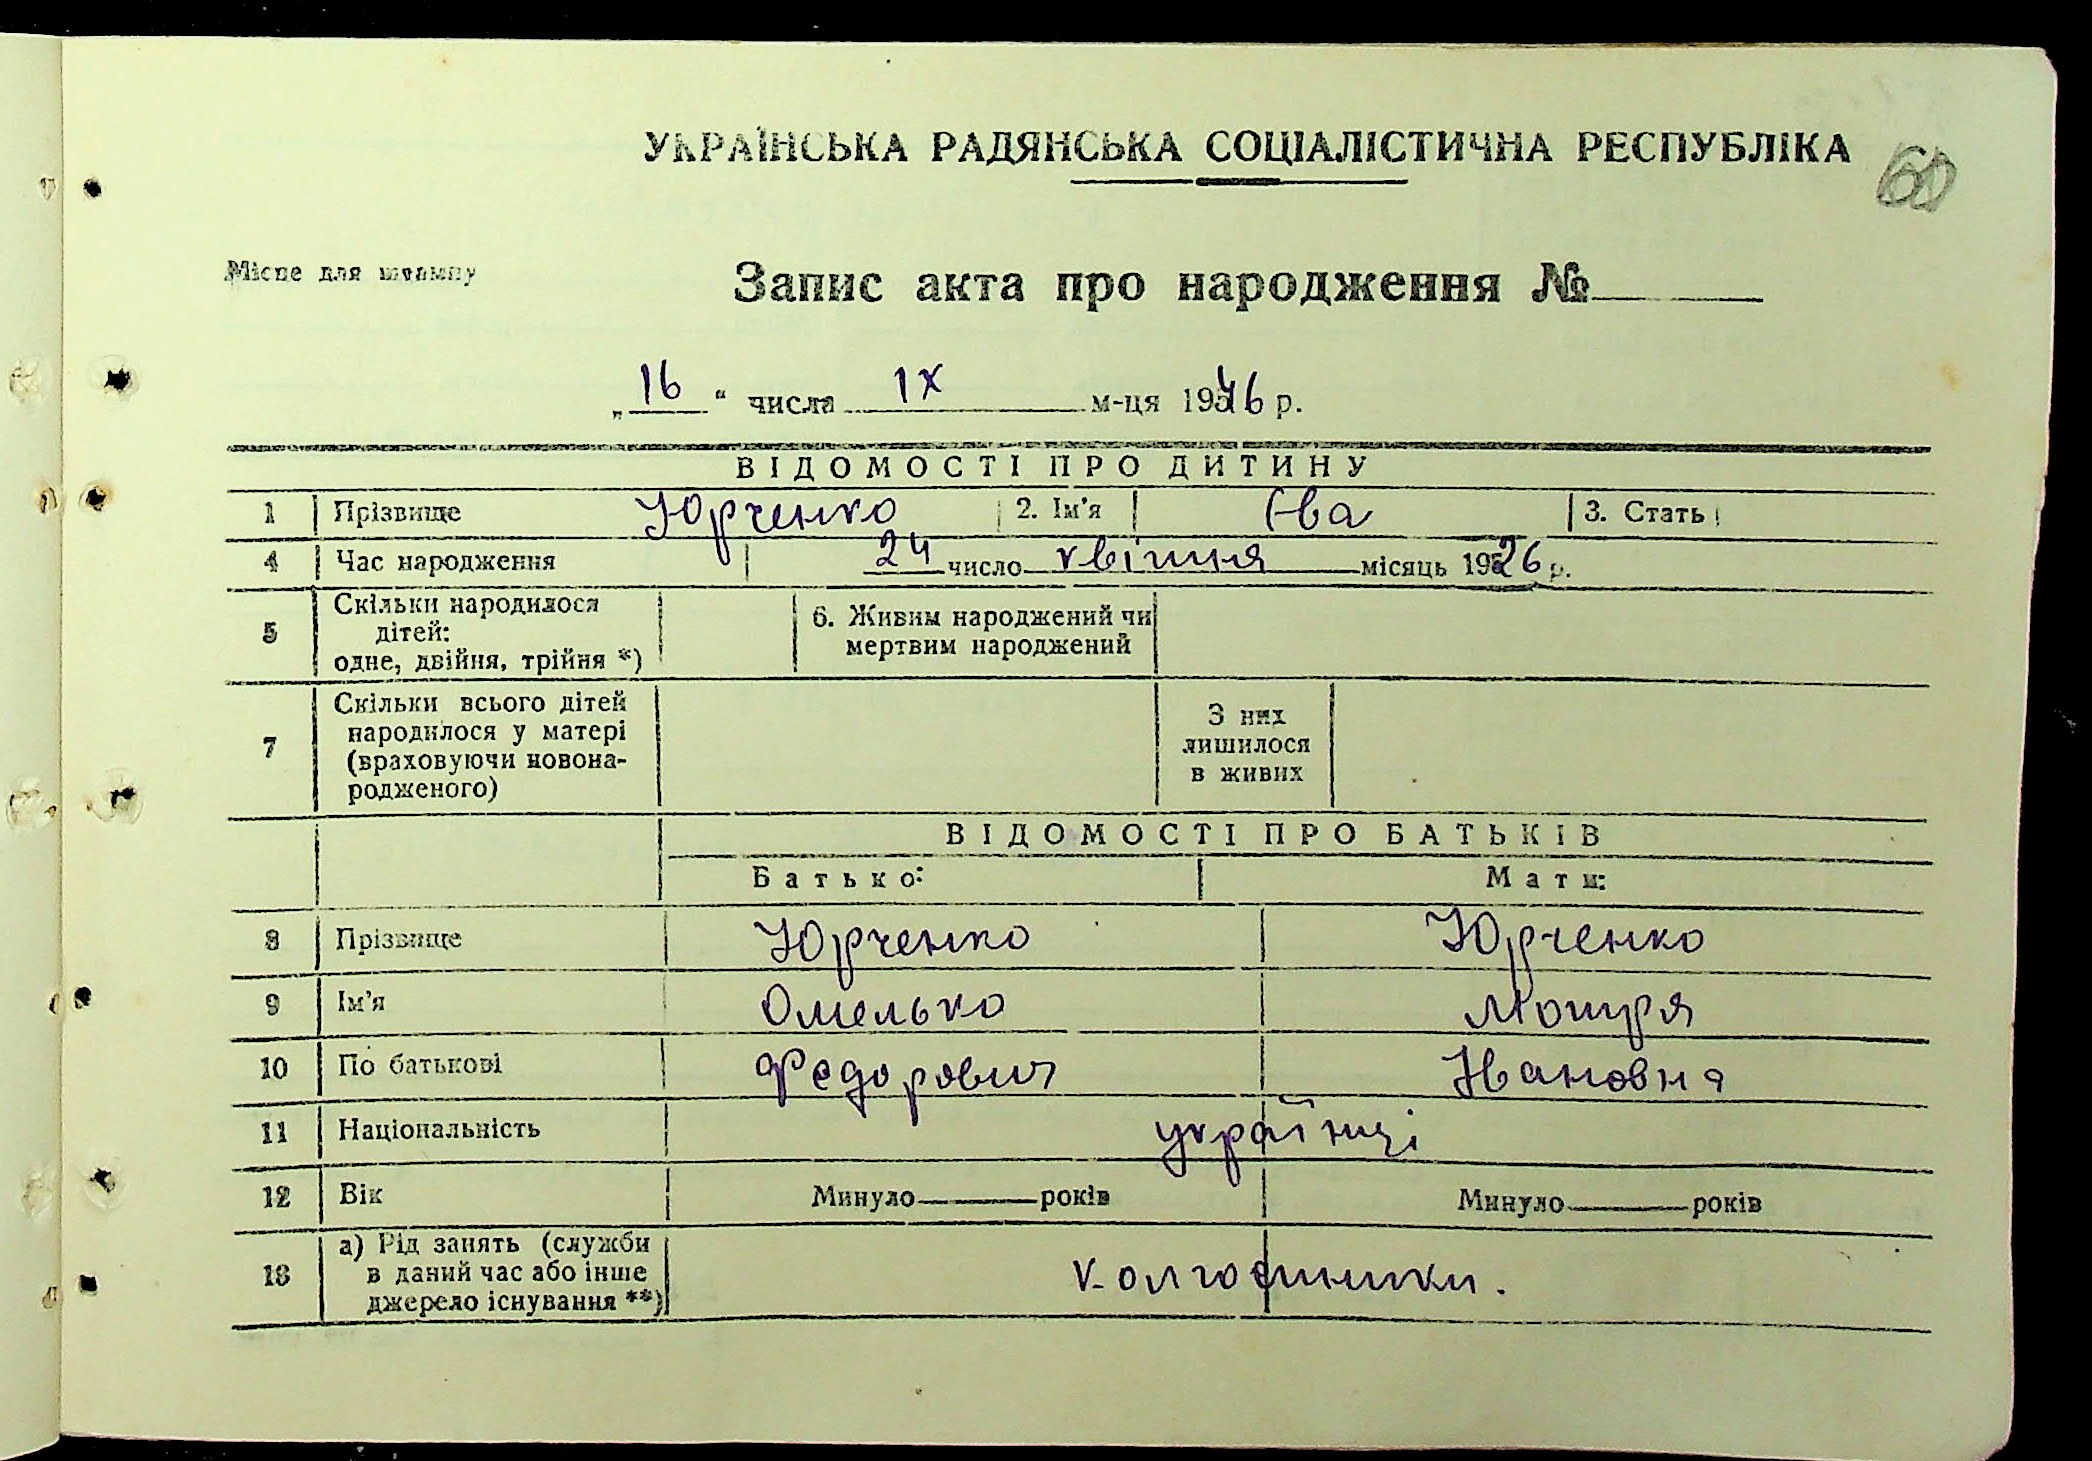 УКРАЇНСЬКА РАДЯНСЬКА СОЦІАЛІСТИЧНА РЕСПУБЛІКА
60
Місце для штампу
Запис акта про народження №
„16“ числа ІХ м-ця 1946 р.
ВІДОМОСТІ ПРО ДИТИНУ
1 Прізвище Юрченко 2. Ім'я Єва 3. Стать
4 Час народження 24 число квітня місяць 1926 р.
5 Скільки народилося дітей: одне, двійня, трійня *) 6. Живим народжений чи мертвим народжений
7 Скільки всього дітей народилося у матері (враховуючи новонародженого) З них лишилося в живих
ВІДОМОСТІ ПРО БАТЬКІВ
Батько: Мати:
8 Прізвище Юрченко Юрченко
9 Ім'я Омелько Мотря
10 По батькові Федорович Івановна
11 Національність українці
12 Вік Минуло років Минуло років
13 а) Рід занять (служби в даний час або інше джерело існування **) колгоспники.